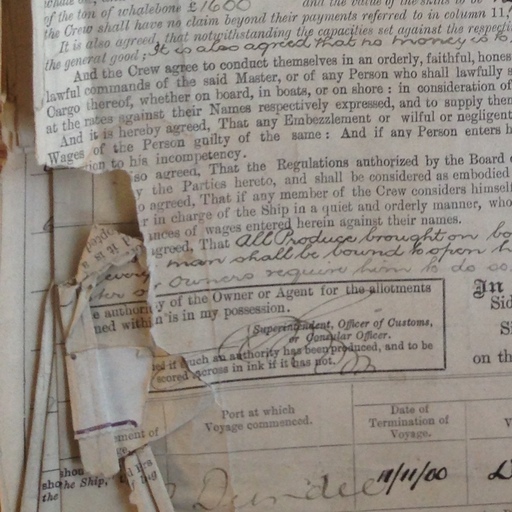 of the ton of whalebone £1600 and the value of the skins to be
the Crew shall have no claim beyond their payments referred to in column 11,
It is also agreed, that notwithstanding the capacities set against the respecti
the general good; It is also agreed that no money is to
And the Crew agree to conduct themselves in an orderly, faithful, hones
lawful commands of the said Master, or of any Person who shall lawfully s
Cargo thereof, whether on board, in boats, or on shore: in consideration of
at the rates against their Names respectively expressed, and to supply them
And it is hereby agreed, That any Embezzlement or wilful or negligent
Wages of the Person guilty of the same: And if any Person enters h
on to his incompetency.
so agreed, That the Regulations authorized by the Board
y the Parties hereto, and shall be considered as embodied
o agreed, That if any member of the Crew considers himself
r in charge of the Ship in a quiet and orderly manner, who
nces of wages entered herein against their names.
agreed, That All Produce brought on bo
man shall be bound to open h
owners require him to do so.
y of the Owner or Agent for the allotments
ned within is in my possession.
Superintendent, Officer of Customs,
or Consular Officer.
ed if such an authority has been produced, and to be
scored across in ink if it has not.
In
Sid
on th
Port at which
Voyage commenced.
Date of
Termination of
Voyage.
V
ment of
he Ship,
the
Dundee
11/11/00